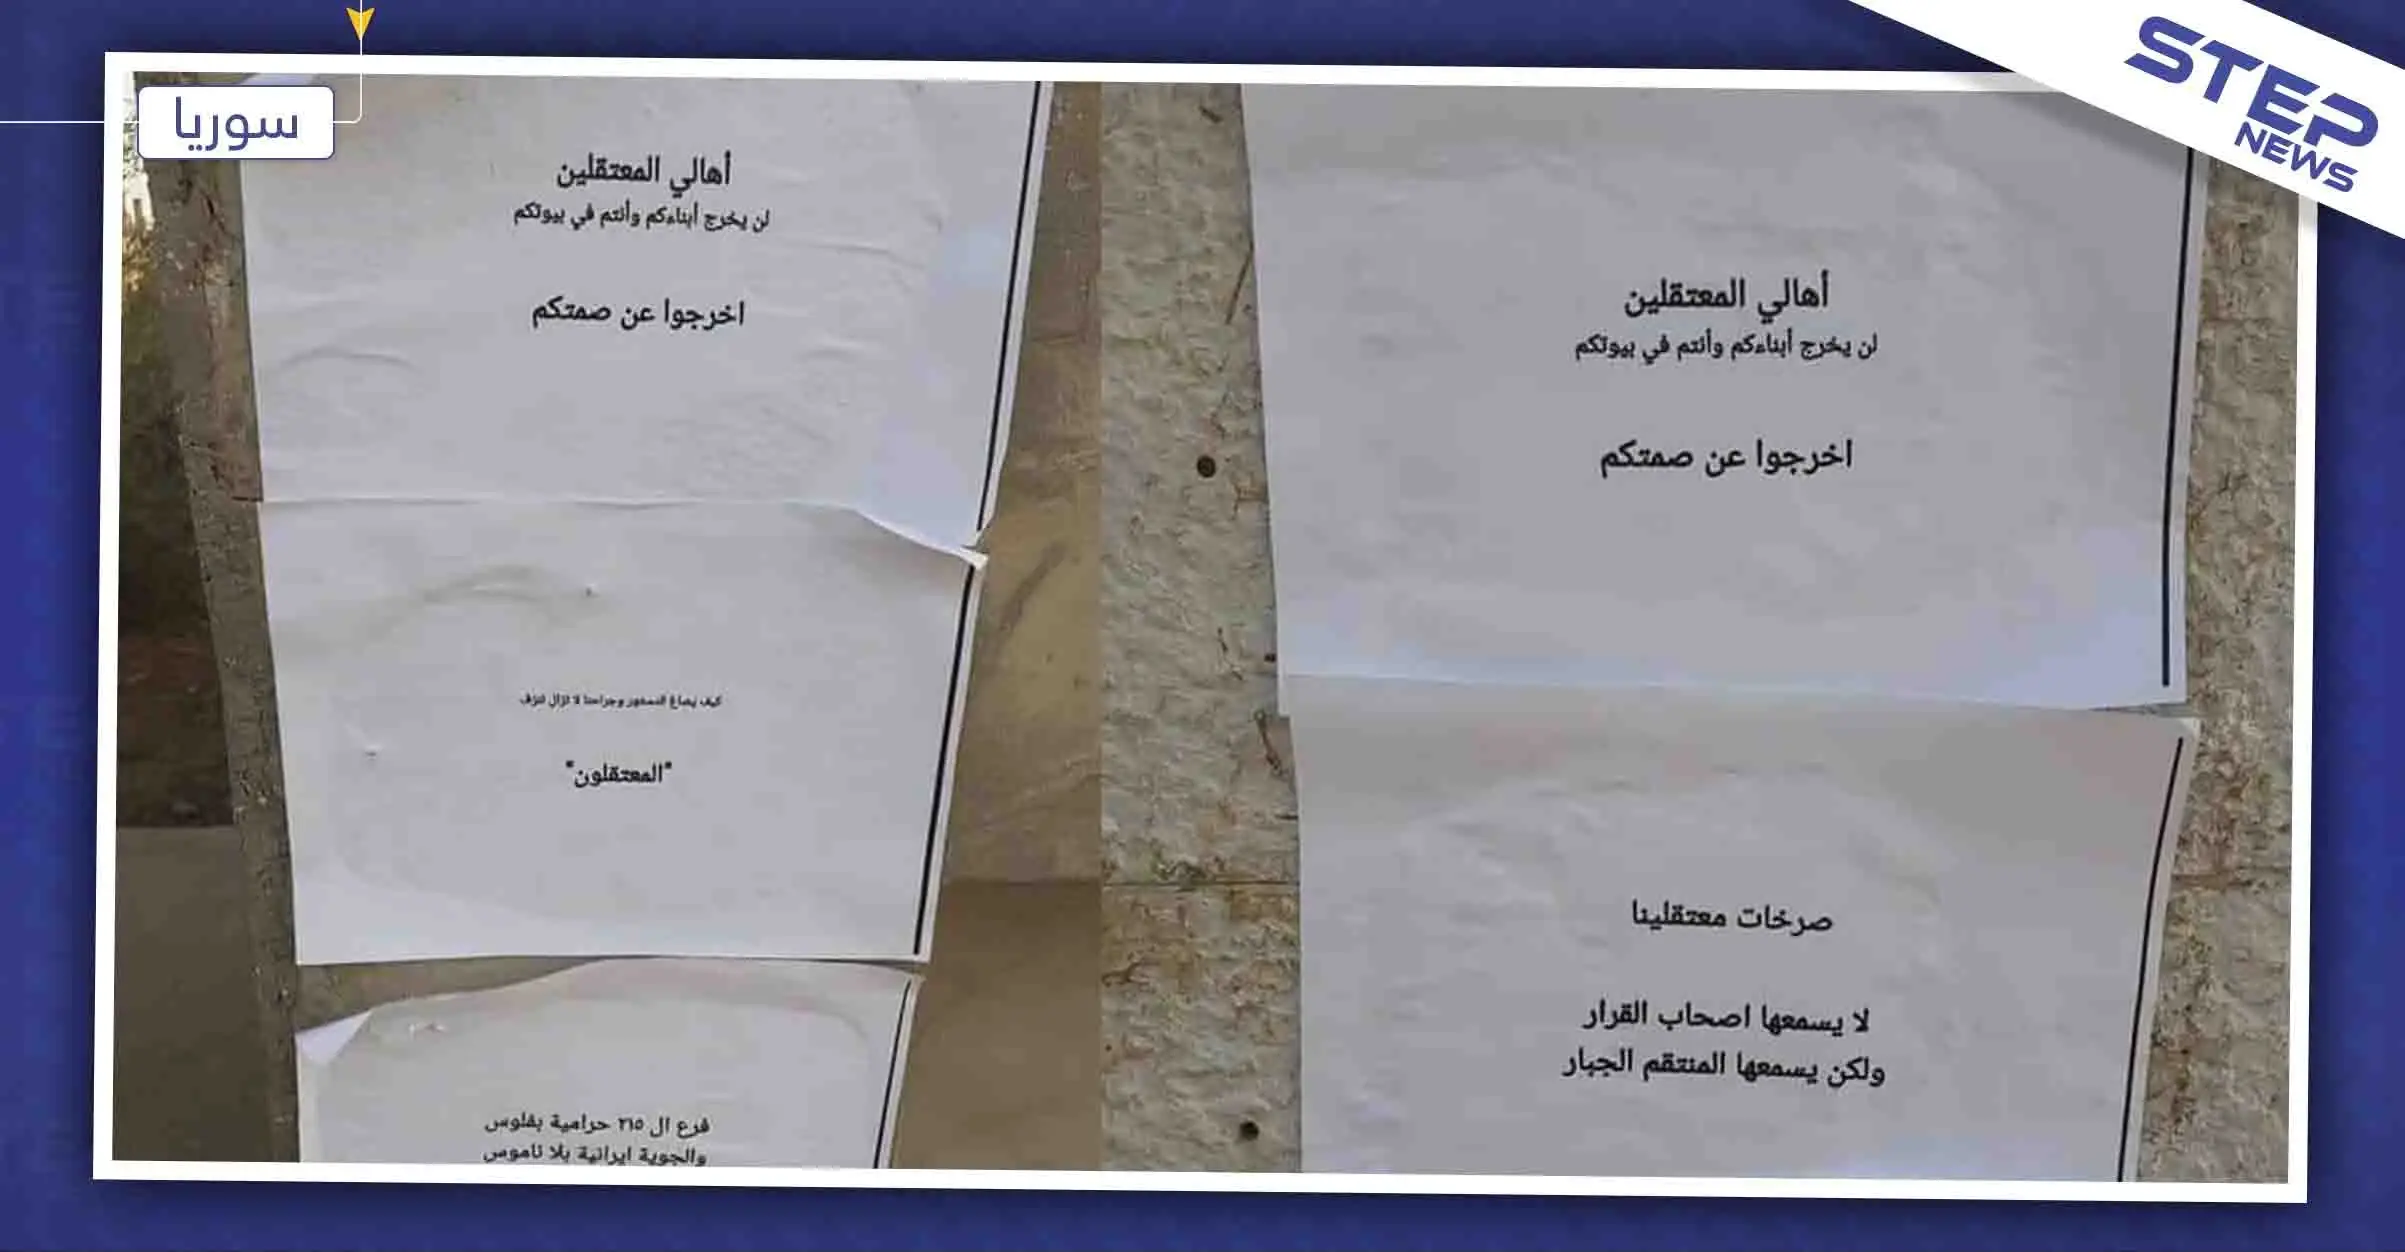 سوريا
STEP
NEWS
أهالي المعتقلين
لن يخرج أبناءكم وأنتم في بيوتكم
اخرجوا عن صمتكم
أهالي المعتقلين
لن يخرج أبناءكم وأنتم في بيوتكم
اخرجوا عن صمتكم
كيف يصاغ الدستور وجراحنا لا تزال تنزف
"المعتقلون"
صرخات معتقلينا
لا يسمعها اصحاب القرار
ولكن يسمعها المنتقم الجبار
فرع ال ٢١٥ حرامية بفلوس
والجوية ايرانية بلا ناموس